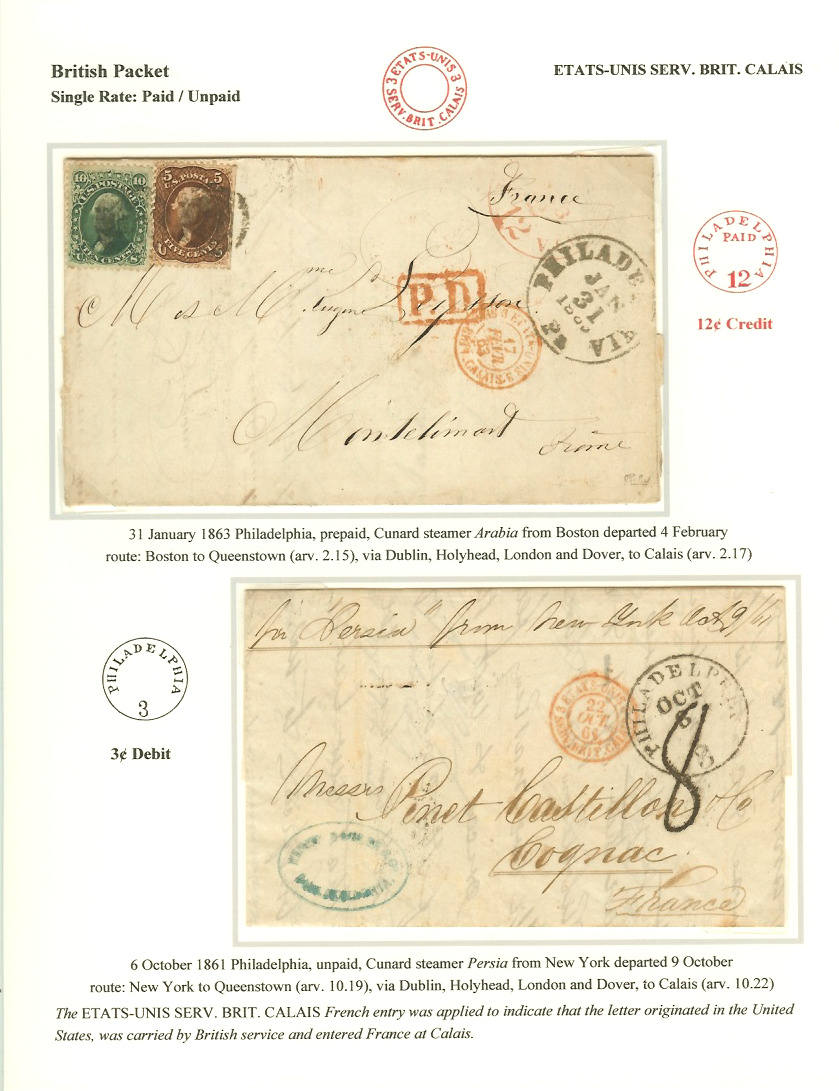 British Packet
Single Rate: Paid / Unpaid
3 ETATS-UNIS 3
SERV. BRIT. CALAIS
ETATS-UNIS SERV. BRIT. CALAIS
10 U.S. POSTAGE 10
TEN CENTS
5 U.S. POSTAGE 5
FIVE CENTS
France
12
PHILADELPHIA
PAID
12
12¢ Credit
PHILADE PHIA Pa
JAN
31
1863
P.D.
17
FEVR
63
CALAIS
Montelimart
Drome
31 January 1863 Philadelphia, prepaid, Cunard steamer Arabia from Boston departed 4 February
route: Boston to Queenstown (arv. 2.15), via Dublin, Holyhead, London and Dover, to Calais (arv. 2.17)
PHILADELPHIA
3
3¢ Debit
"Persia" from New York Oct 9/61
3 ETATS-UNIS
SERV. BRIT. CALAIS
22
OCT
61
PHILADELPHIA
OCT
6
3
8
Messrs Pinet Castillon & Co
Cognac
France
6 October 1861 Philadelphia, unpaid, Cunard steamer Persia from New York departed 9 October
route: New York to Queenstown (arv. 10.19), via Dublin, Holyhead, London and Dover, to Calais (arv. 10.22)
The ETATS-UNIS SERV. BRIT. CALAIS French entry was applied to indicate that the letter originated in the United
States, was carried by British service and entered France at Calais.